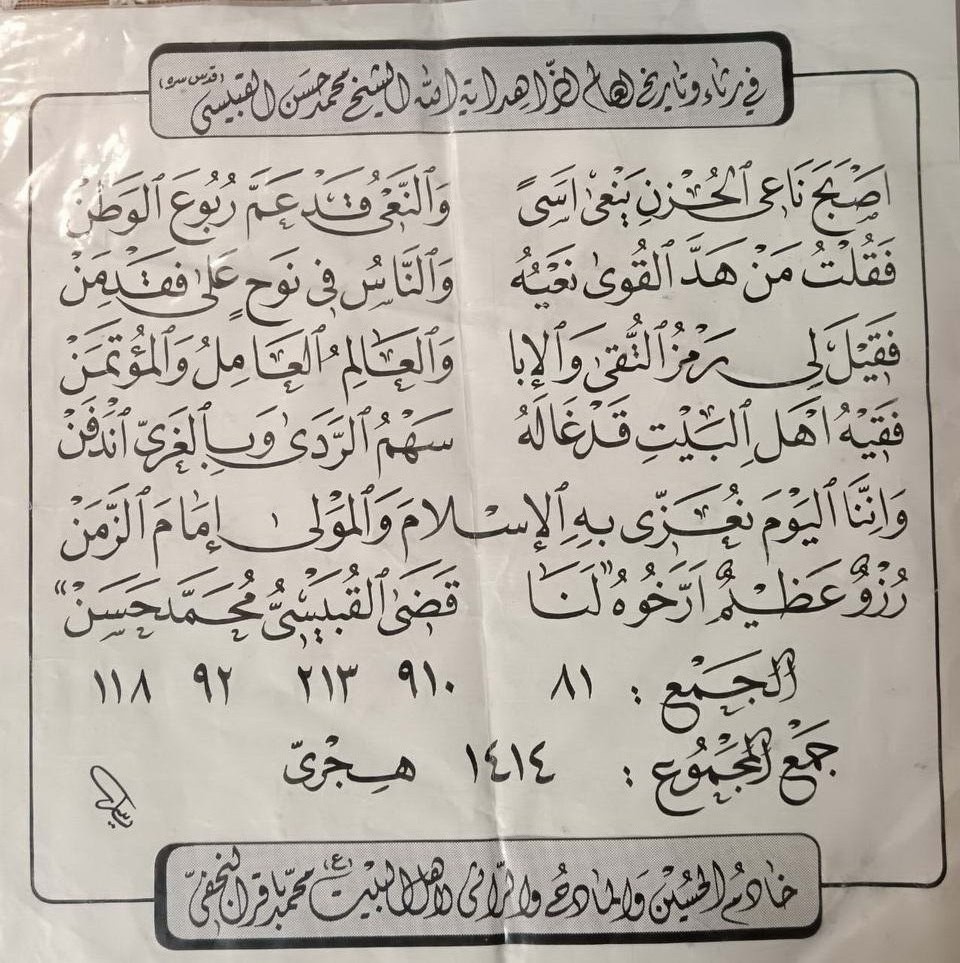 في رثاء وتاريخ العالم الزاهد اية الله الشيخ محمد حسن القبيسي (قدس سره)
اَصْبَحَ نَاعى الحُزنِ يَنْعىٰ اَسَىً وَالنَّعْىُ قَدْ عَمَّ رُبُوعَ الوَطَنْ
فَقُلْتُ مَنْ هَدَّ القُوىٰ نَعْيُهُ وَالنَّاسُ في نَوحٍ عَلىٰ فَقْدِ مَنْ
فَقِيْلَ لي رَمْزُ التُّقىٰ وَالإبا وَالعَالِمُ العَامِلُ وَالمُؤتَمَنْ
فَقِيْهُ اَهْلِ البَيْتِ قَدْ غَالَهُ سَهْمُ الرَّدَىٰ وَبِالغَرِىّ اندَفَنْ
وَاِنَّنَا اليَوْمَ نُعَزّى بِهِ الإسْلامَ وَالمَوْلىٰ إمَامَ الزَّمَنْ
رُزْؤٌ عَظِيْمٌ اَرَّخُوهُ "لَنَا قَضَىٰ القُبَيْسىُّ مُحَمَّد حَسَنْ"
الجَمْع : ٨١ ٩١٠ ٢١٣ ٩٢ ١١٨
جَمْع المَجْمُوع : ١٤١٤ هِجْرىّ
خادم الحسين والمادح والراثي لاهل البيت (ع) محمد باقر النجفي